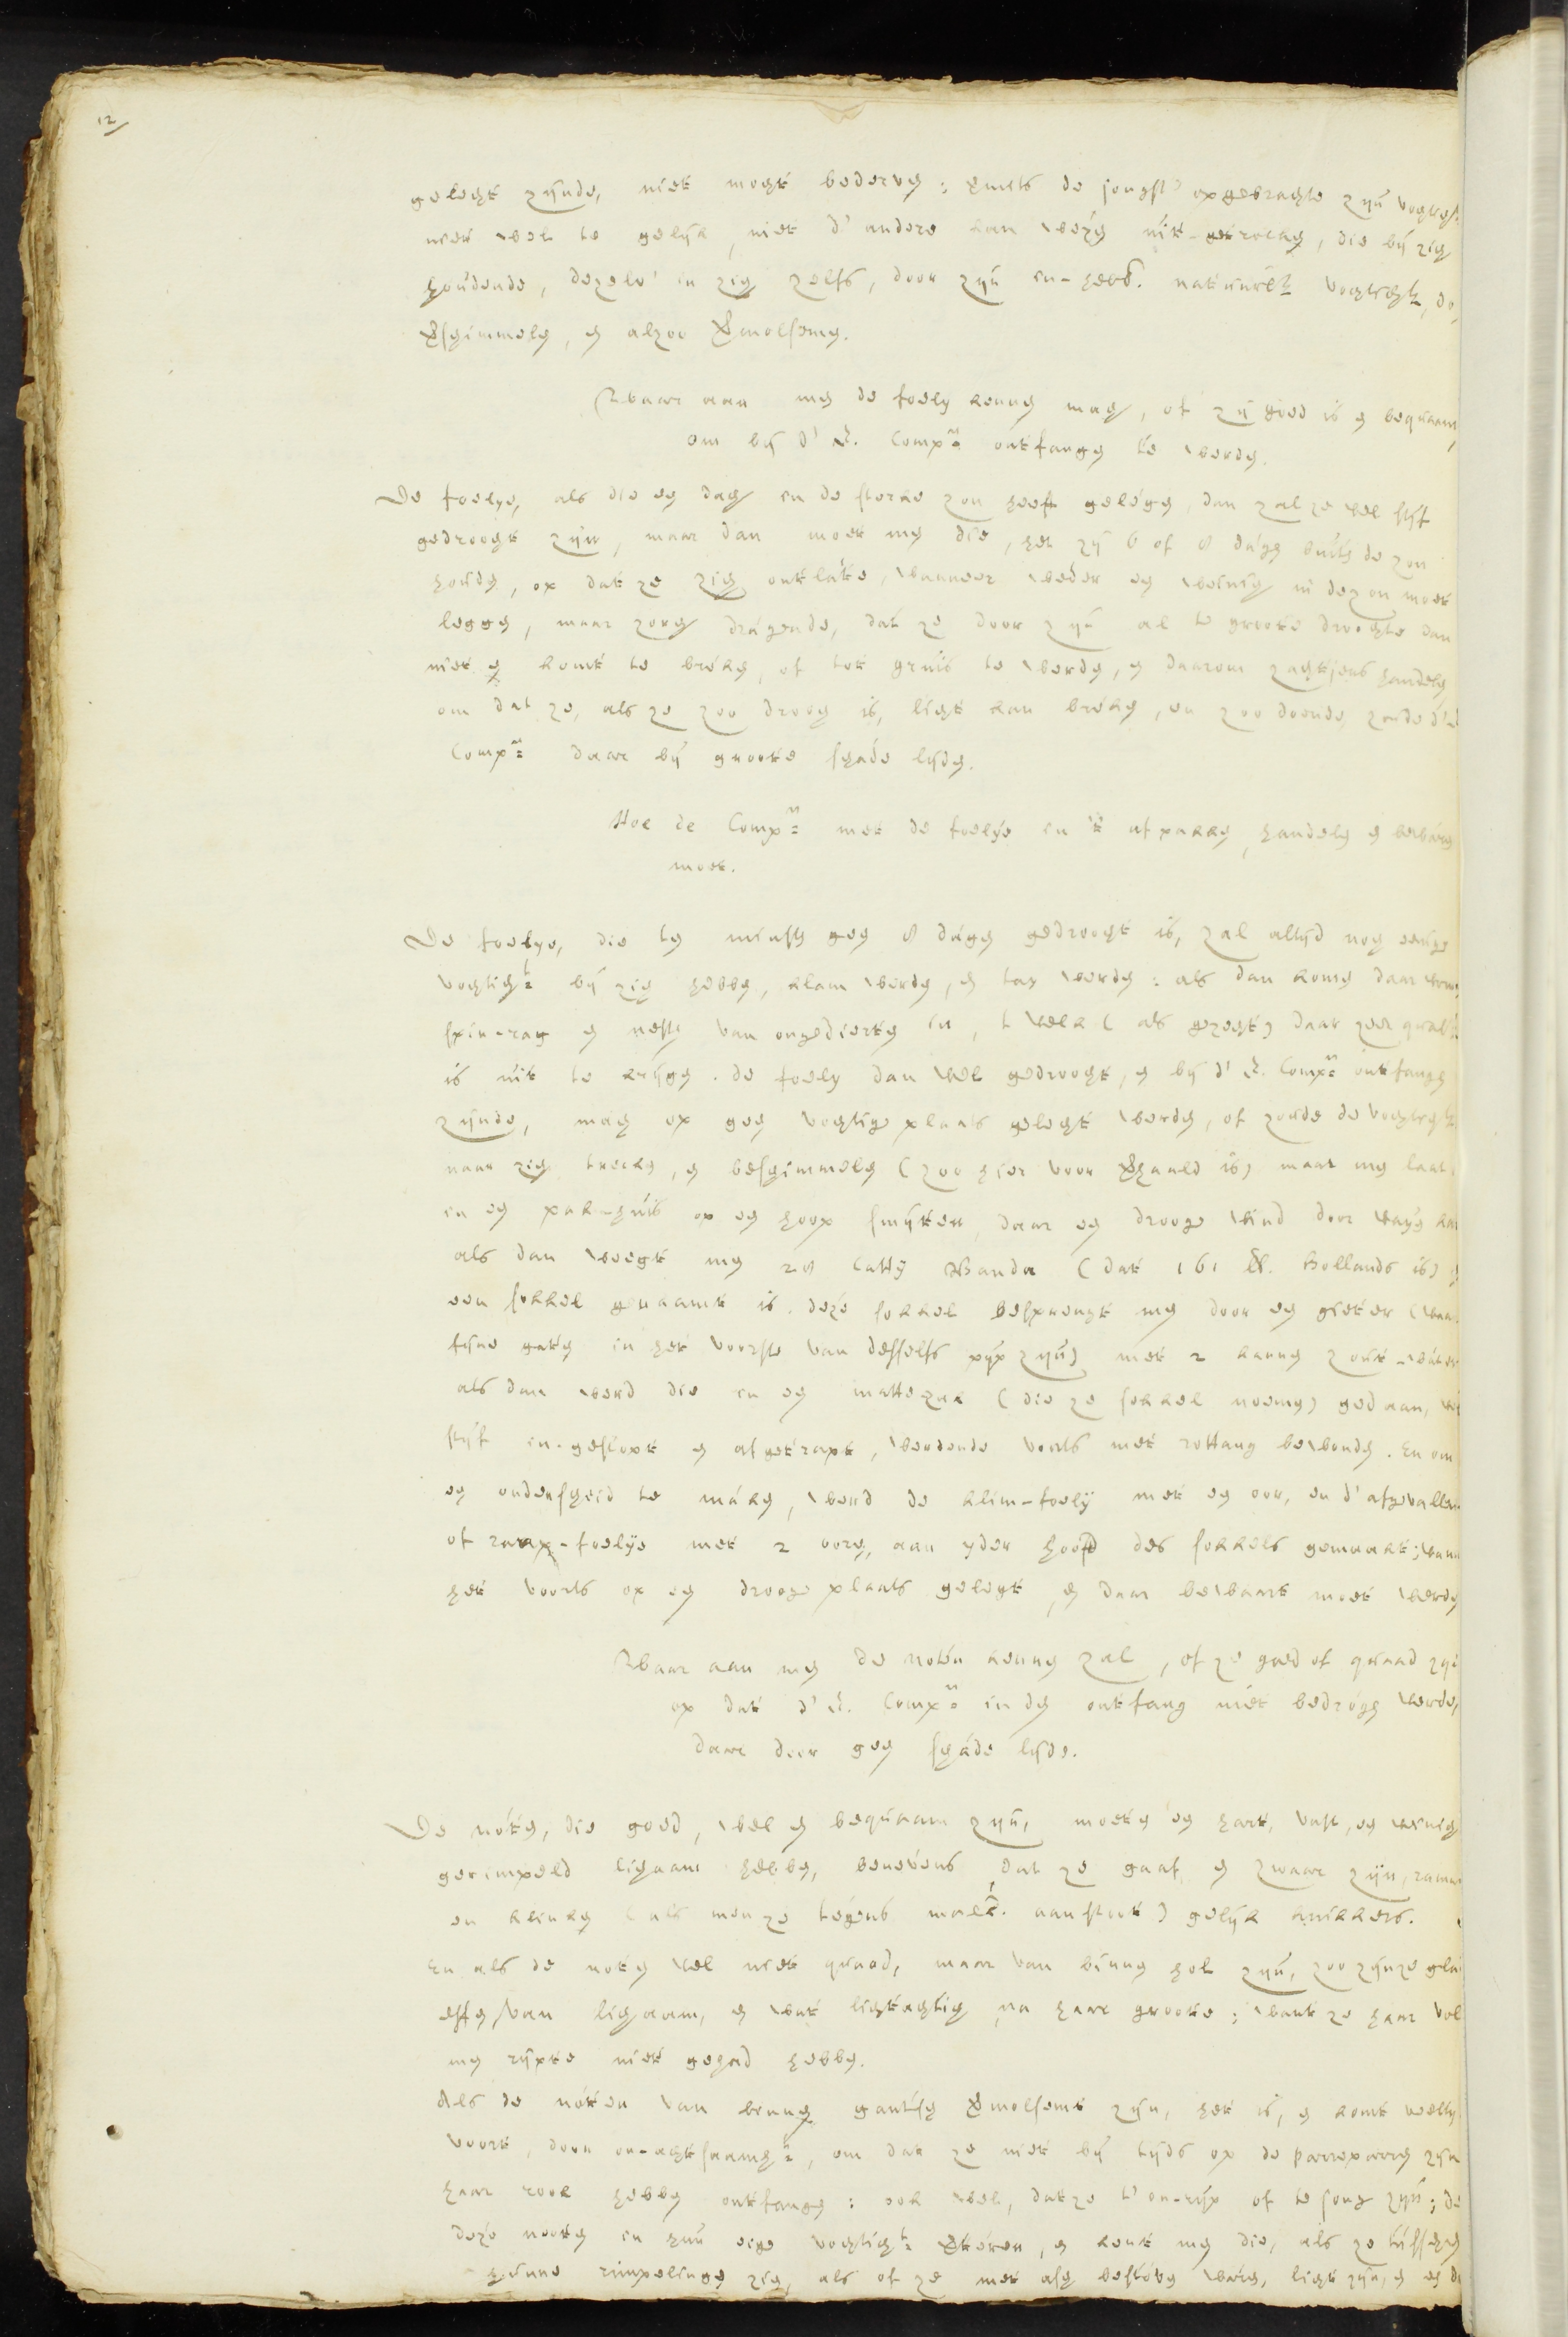 12/
gelegt zijnde, niet mogt bederven: vmits de jongst' opgebragte zijn vogtigh:
niet wel te gelijk, met d' andere kan wezen uit-getrocken, die bij zig
houdende, dezelv' in zig zelfs, door zijn in-heb:d natuurl: vogtigh:t, do
vschimmelen, en alzoo vmolsemen.
Waar aan men de foely kennen mag, of zij goed is en bequaam,
om bij d' E. Comp:n ontfangen te werden.
De foelye, als die een dag in de sterke zon heeft gelégen, dan zal ze wel stijf
gedroogt zijn, maar dan moet men die, het zij 6 of 8 dágen buiten de zon
houden, op dat ze zig ontlate, wanneer weder een weinig in de zon moet
leggen, maar zorg drágende, dat ze door zijn al te groote droogte dan
niet en komt te bréken, of tot gruis te werden, en daarom zagtjens handelen
om dat ze, als ze zoo droog is, ligt kan bréken, en zoo doende zoude d' E
Comp:n daar bij groote scháde lijden.
Hoe de Comp:n met de foelye in 't afpakken, handelen en bewáren
moet.
De foelye, die ten minsten geen 8 dágen gedroogt is, zal altijd nog eenige
vogtigh:t bij zig hebben, klam werden, en tay werden: als dan komen daar
spin-rag en nesten van ongedierten in, t welk (als gezegt) daar zeer qualk
is uit te krijgen. de foely dan wel gedroogt, en bij d' E. Comp:n ontfangen
zijnde, mag op geen vogtige plaats gelegt werden, of zoude de vogtigh:t
naar zig trecken, en beschimmelen (zoo hier voor vhaald is) maar men laat
in een pakhuis op een hoop smijten, daar een drooge wind door wayen kan
als dan weegt men 28 Catty Banda (dat 161 lb. Hollands is)
een sokkel genaamt is. deze sokkel besprengt men door een gieter (waar
fijne gaten in het voorste van desselfs pijp zijn) met 2 kannen zout-water
als dan werd die in een mattezak (die ze sokkel noemen) gedaan,
stijf in-gestopt en afgetrapt, werdende voorts met rottang bewonden. En om
een onderscheid te máken, werd de klim-foely met een oor, en d' afgevallen
of raap-foelye met 2 ooren, aan yder hoofd des sokkels gemaakt; wann
het voorts op een drooge plaats gelegt, en daar bewaart moet werden
Waar aan men de noten kennen zal, of ze goed of quaad zijn
op dat d' E. Comp:n in den ontfang niet bedrógen werde,
daar door geen scháde lijde.
De nóten, die goed, wel en bequaam zijn, moeten een hart, vast, en weinig
gerimpeld lighaam hebben, benevens dat ze gaaf en zwaar zijn,
en klinken (als men ze tégens malk:r aanstoot) gelijk knikkers.
En als de noten wel niet quaad, maar van binnen hol zijn, zoo zijn ze
effen van lighaam, en wat ligtagtig na haar groote; want ze haar vol
men rijpte niet gehad hebben.
Als de nóten van binnen gantsch vmolsemt zijn, het is, en komt veelty
voort, door on-agtsaamh:t, om dat ze niet bij tijds op de parreparren zijn
haar rook hebben ontfangen: ook wel, dat ze t' on-rijp of te jong zijn; de
deze nooten in hun eige vogtigh:t vtéren, en kent men die, als ze tusschen
heunne rimpelingen zig, als of ze met asch bestóven wáren, ligt zijn, en